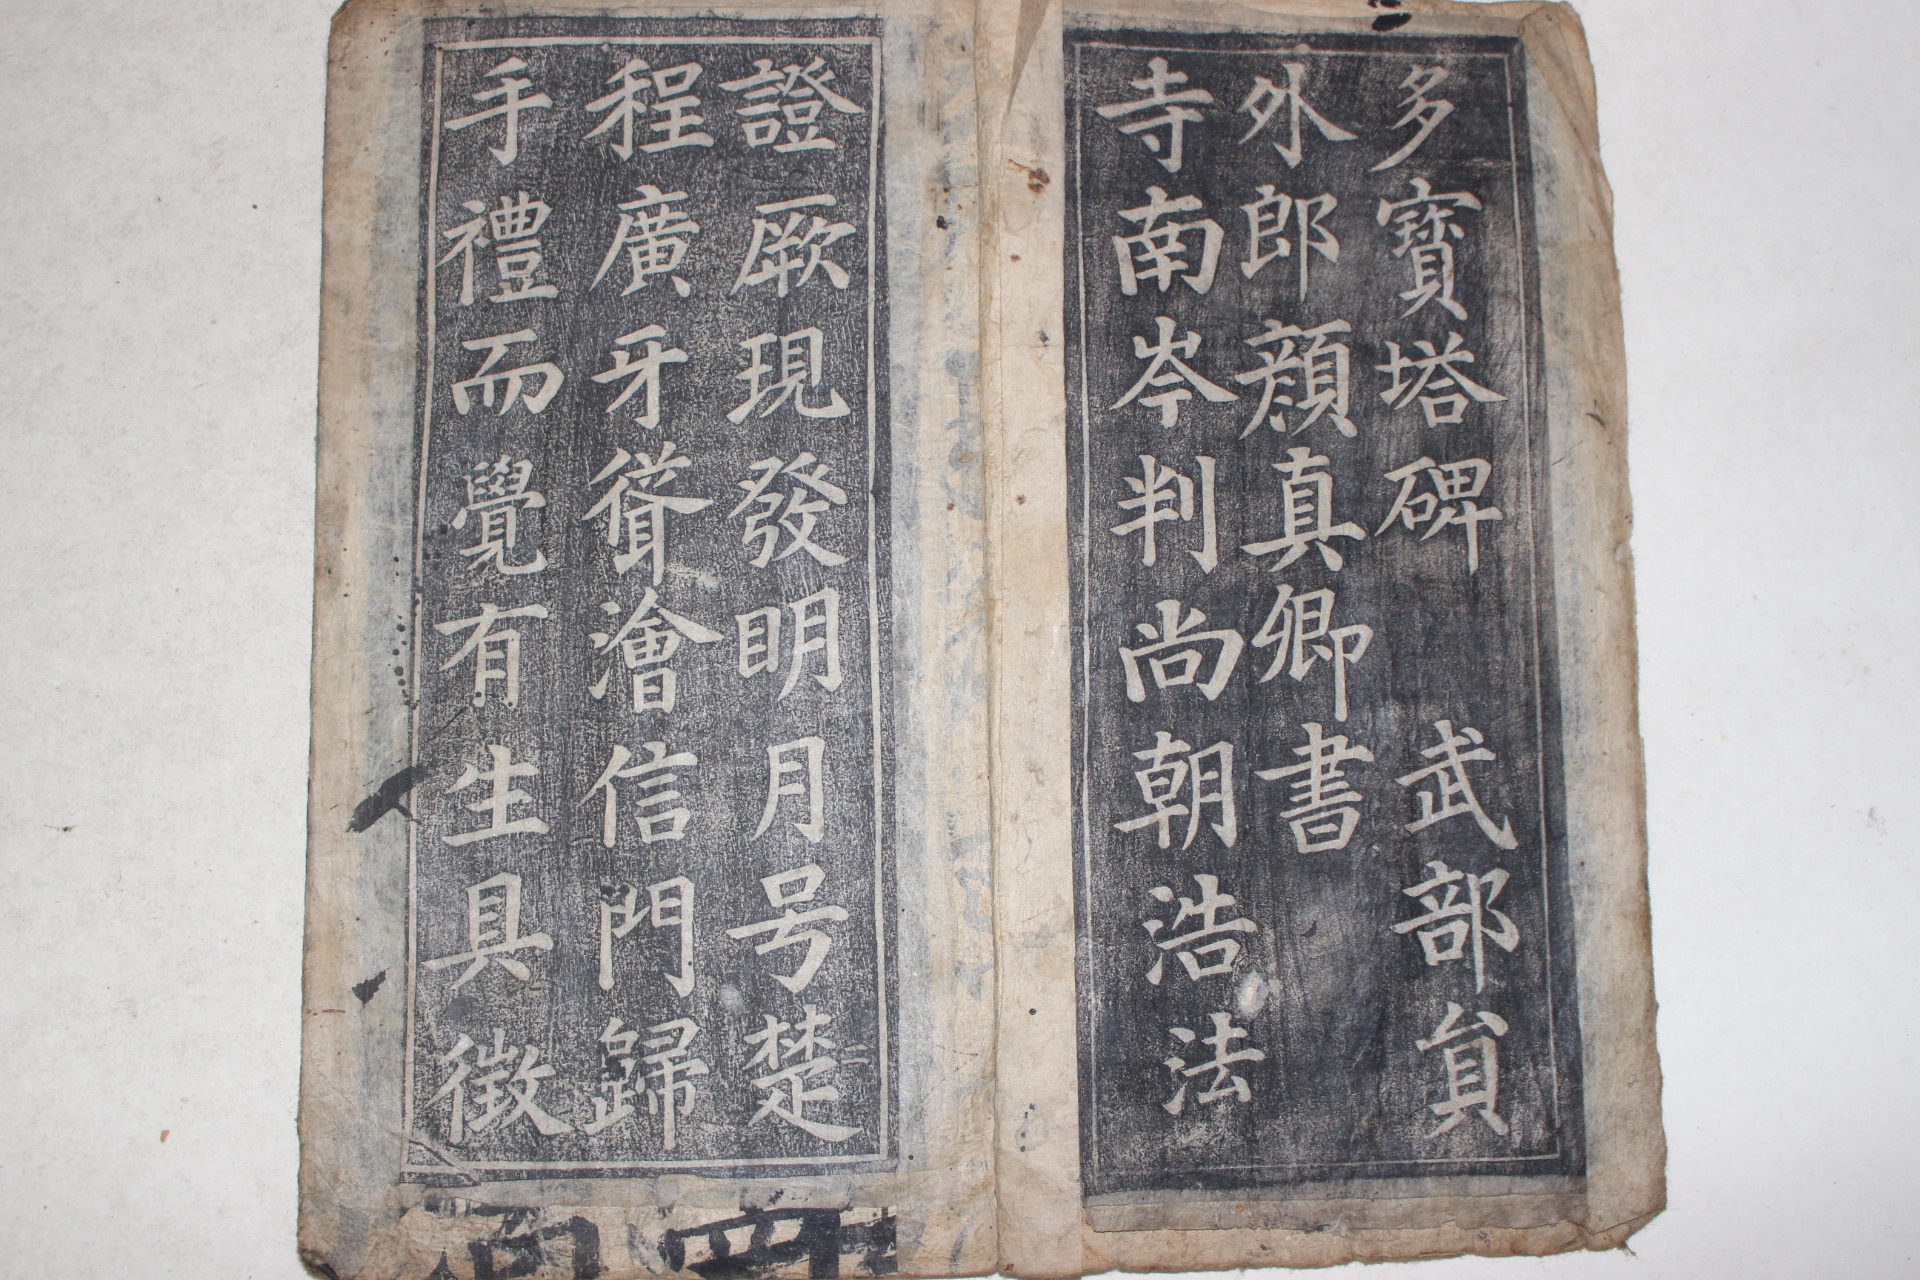 多寶塔碑 武部貟
外郎顔真卿書
寺南岑判尚朝浩法
證厥現發明月号楚
二
程廣牙聳澮信門歸
手禮而覺有生具徵